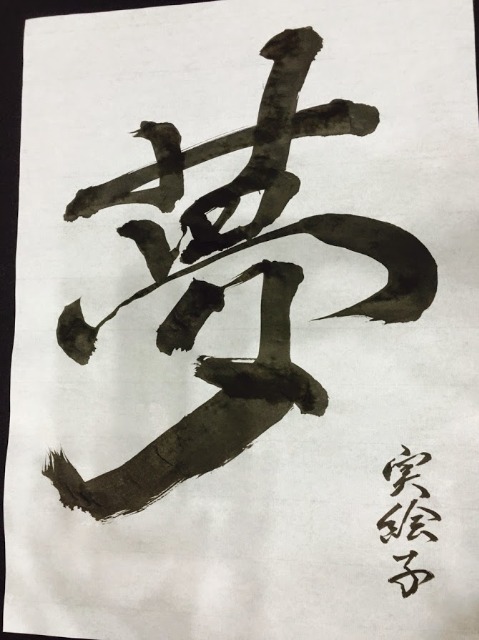 夢
実絵子